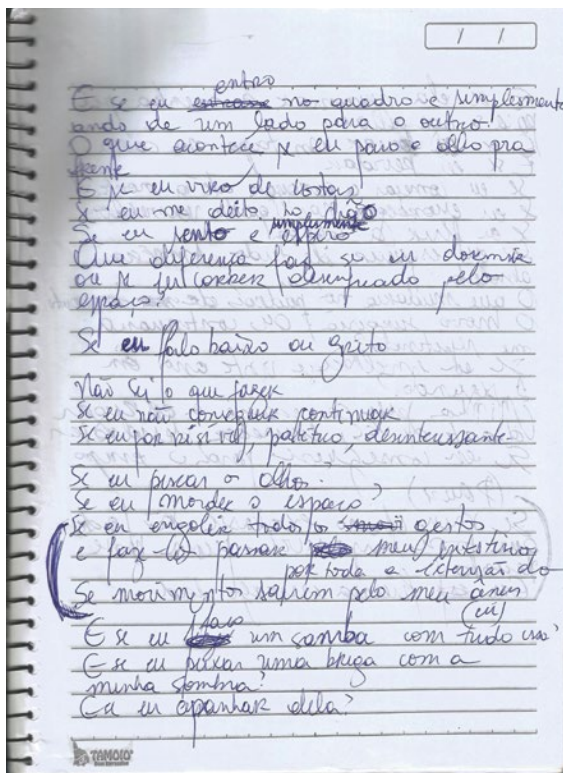 / /
entro
E se eu entrasse no quadro e simplesmente
ando de um lado para o outro.
O que acontece se eu paro e olho pra
frente
E se eu viro de costas
Se eu me deito no chão
simplesmente
Se eu sento e espiro
Que diferença faz se eu dormir
ou se eu correr desenfreado pelo
espaço?
Se eu falo baixo ou grito
Não sei o que fazer
Se eu não conseguir continuar
Se eu for risível, patético, desinteressante
Se eu piscar o olho.
Se eu morder o espaço?
Se eu engolir todos os gestos
e fazê-los passar meu intestino
por toda a extensão do
Se movimentos saírem pelo meu ânus
(cu)
faço
E se eu um samba com tudo isso?
E se eu puxar uma briga com a
minha sombra?
E se eu apanhar dela?
TAMOIO